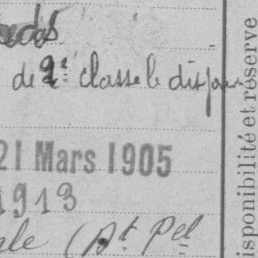 de 2e classe le dis jour
21 Mars 1905
1913
ale (At Pel
isponibilité et réserve